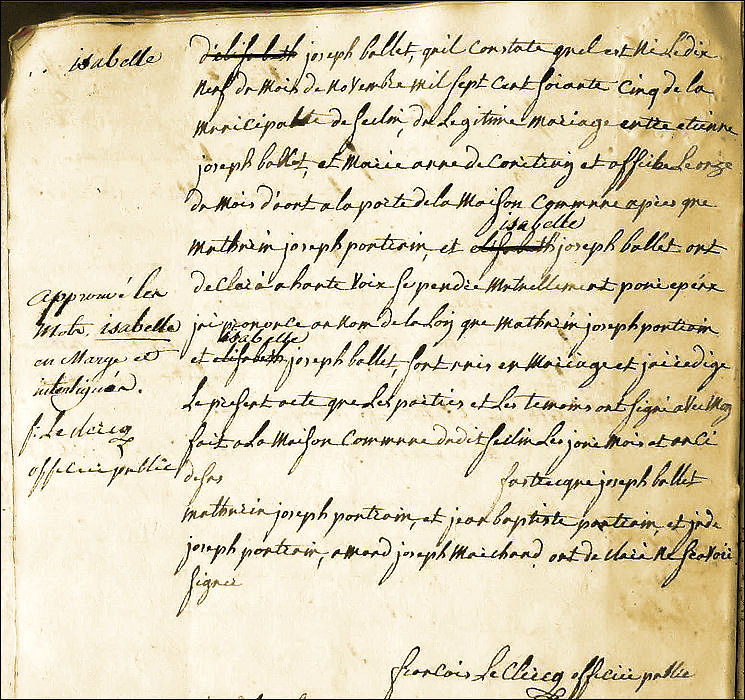 isabelle
d'elisabeth joseph ballet, qu'il constate quel est né le dix
neuf du mois de novembre mil sept cent soixante cinq de la
municipalité de Seclin, du legitime mariage entre etienne
joseph ballet, et Marie anne et affiché le onze
du mois d'aout a la porte de la Maison commune apres que
isabelle
mathurin joseph pontrain, et elisabeth joseph ballet ont
declaré a haute voix se prendre mutuellement pour epoux
j'ai prononcé au nom de la Loy que mathurin joseph pontrain
isabelle
et elisabeth joseph ballet, sont unis en Mariage et j'ai redigé
Le present acte que Les parties et Les temoins ont signé avec Moy
fait a La Maison Commune dudit Seclin Les jour mois et an ci
desus joseph ballet
mathurin joseph pontrain, et jean baptiste pontrain, et
joseph pontrain, amand joseph Marchand ont declaré ne scavoir
signer
approuvé les
mots isabelle
en Marge et
interlignée.
f. Le clercq
officier public
francois Le Clercq officier public